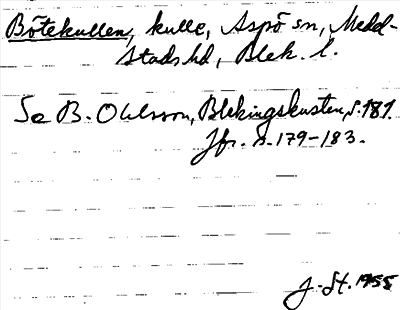 Bötekullen, kulle, Aspö sn, Medel-
stads hd, Blek. l.
Se B. Ohlsson, Blekingskusten, s. 181.
Jfr. s. 179-183.
J. St. 1955